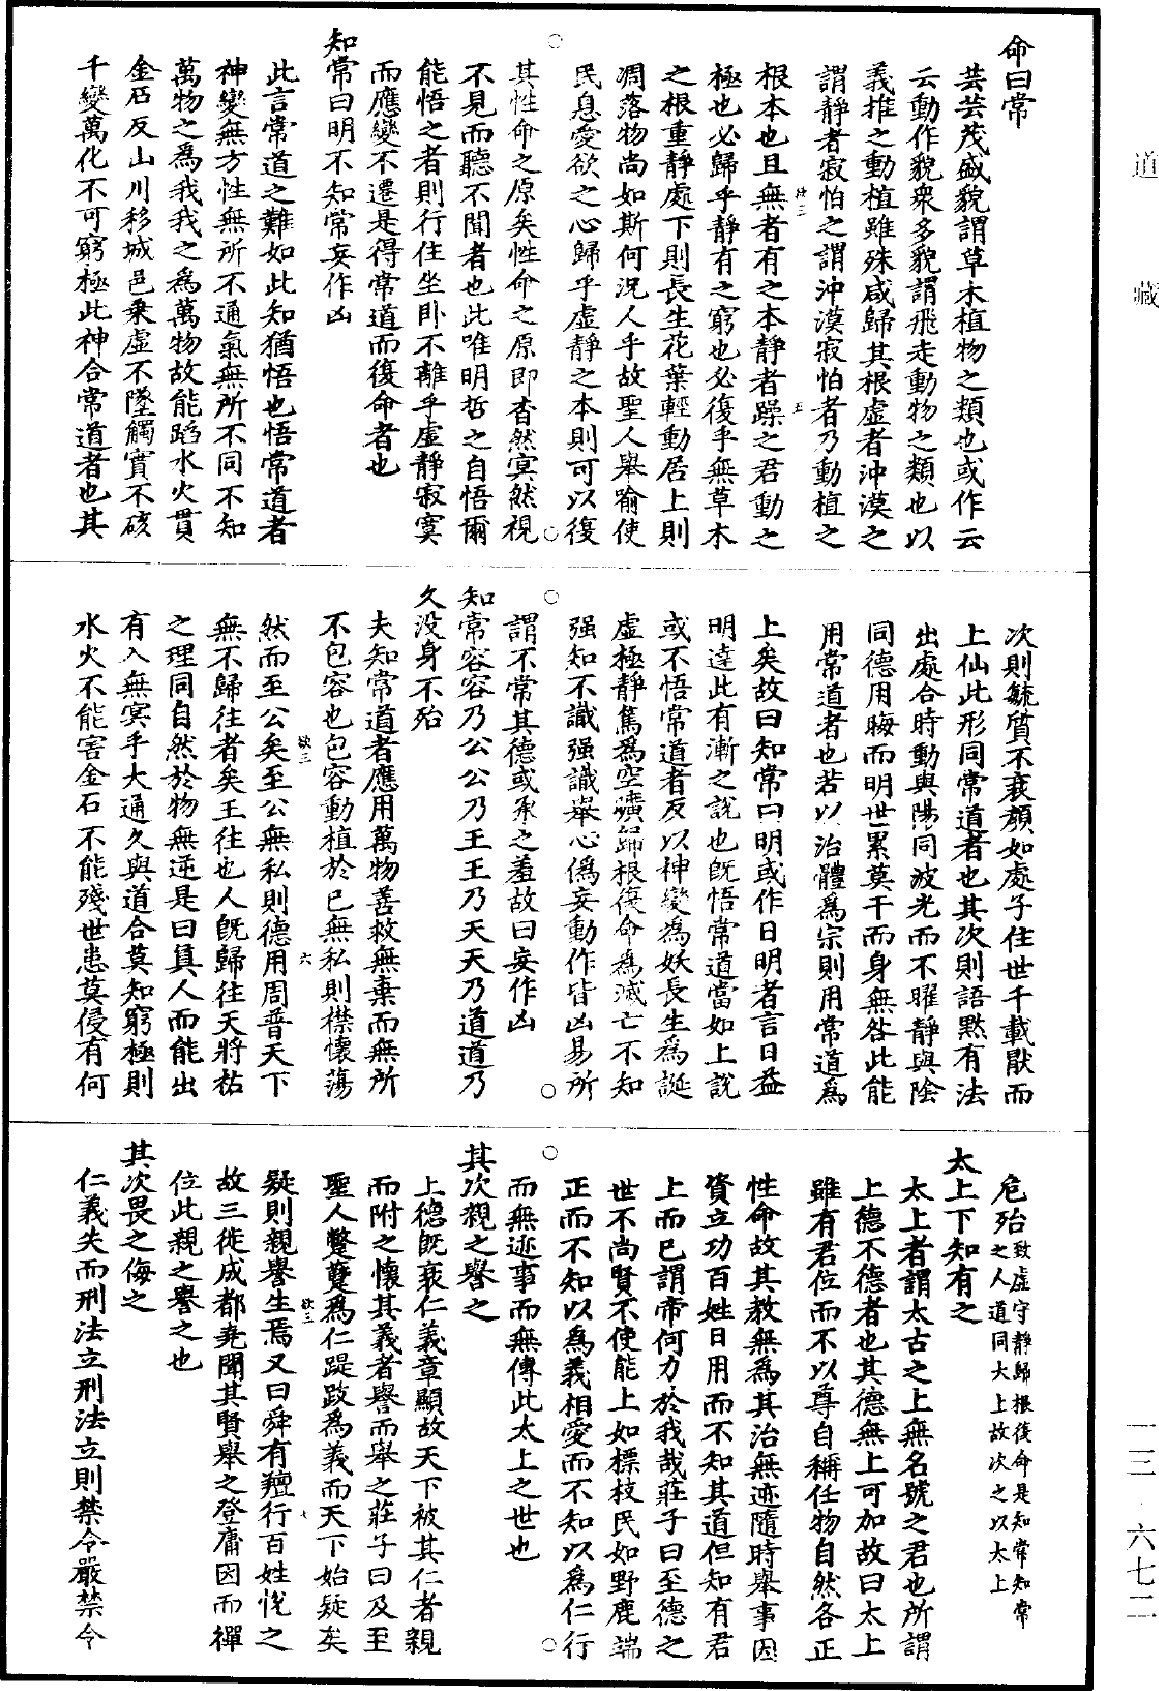 命曰常
芸芸茂盛貌謂草木植物之類也或作云
云動作貌衆多貌謂飛走動物之類也以
義推之動植雖殊咸歸其根虛者沖漠之
謂靜者寂怕之謂沖漠寂怕者乃動植之
根本也且無者有之本靜者躁之君動之
極也必歸乎靜有之窮也必復乎無草木
之根重靜處下則長生花葉輕動居上則
凋落物尚如斯何況人乎故聖人舉喻使
民息愛欲之心歸乎虛靜之本則可以復
其性命之原矣性命之原即杳然冥然視
不見而聽不聞者也此唯明哲之自悟爾
能悟之者則行住坐卧不離乎虛靜寂寞
而應變不遷是得常道而復命者也
知常曰明不知常妄作凶
此言常道之難如此知猶悟也悟常道者
神變無方性無所不通氣無所不同不知
萬物之為我我之為萬物故能蹈水火貫
金石反山川移城邑乗虛不墜觸實不硋
千變萬化不可窮極此神合常道者也其
次則毓質不衰顏如處子住世千載猒而
上仙此形同常道者也其次則語默有法
出處合時動與陽同波光而不曜靜與陰
同德用晦而明世累莫干而身無咎此能
用常道者也若以治體為宗則用常道為
上矣故曰知常曰明或作日明者言日益
明達此有漸之說也旣悟常道當如上說
或不悟常道者反以神變為妖長生為誕
虛極靜篤為空曠歸根復命為滅亡不知
强知不識强識舉心僞妄動作皆凶易所
謂不常其德或承之羞故曰妄作凶
知常容容乃公公乃王王乃天天乃道道乃
久没身不殆
夫知常道者應用萬物善救無棄而無所
不包容也包容動植於已無私則襟懷蕩
然而至公矣至公無私則德用周普天下
無不歸往者矣王往也人旣歸往天將祐
之理同自然於物無逆是曰真人而能出
有入無冥乎大通久與道合莫知窮極則
水火不能害金石不能殘世患莫侵有何
危殆致虛守靜歸根復命是知常知常
之人道同大上故次之以太上
太上下知有之
太上者謂太古之上無名號之君也所謂
上德不德者也其德無上可加故曰太上
雖有君位而不以尊自稱任物自然各正
性命故其教無為其治無迹隨時舉事因
資立功百姓日用而不知其道但知有君
上而已謂帝何力於我哉莊子曰至德之
世不尚賢不使能上如標枝民如野鹿端
正而不知以為義相愛而不知以為仁行
而無迹事而無傳此太上之世也
其次親之譽之
上德旣衰仁義章顯故天下被其仁者親
而附之懷其義者譽而舉之莊子曰及至
聖人蹩躠為仁踶跂為義而天下始疑矣
疑則親譽生焉又曰舜有羶行百姓悅之
故三徙成都堯聞其賢舉之登庸因而禪
位此親之譽之也
其次畏之侮之
仁義失而刑法立刑法立則禁令嚴禁令
道藏
一三·六七二